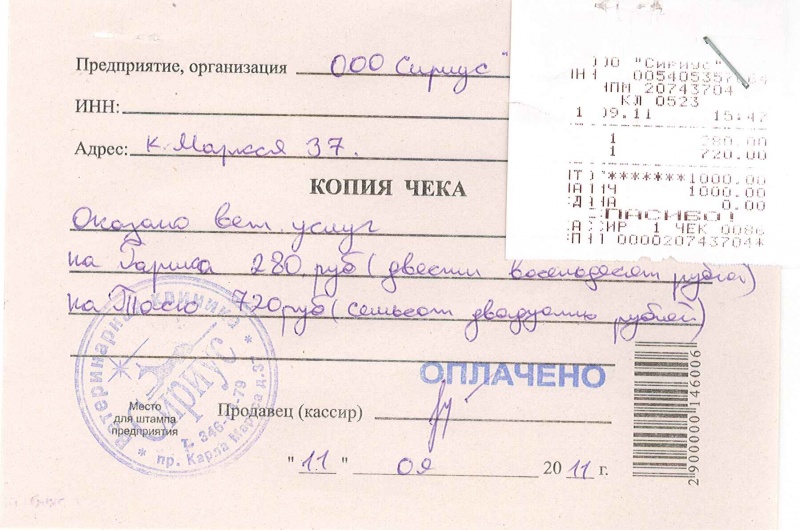 Предприятие, организация ООО Сириус"
ИНН:
Адрес: К. Маркса 37.
КОПИЯ ЧЕКА
Оказано вет. услуг
на Гариса 280 руб (двести восемьдесят рублей)
на Тосю 720 руб (семьсот двадцать рублей)
ОПЛАЧЕНО
Место
для штампа
предприятия
Продавец (кассир)
"11" 09 2011 г.
Ветеринарная клиника
Сириус
пр. Карла Маркса д.37
2900000146006
ОО "Сириус"
НМ 20743704
КЛ 0523
09.11 15:47
1 280.00
1 720.00
*******1000.00
1000.00
0.00
СПАСИБО!
1 ЧЕК 0086
0000020743704*